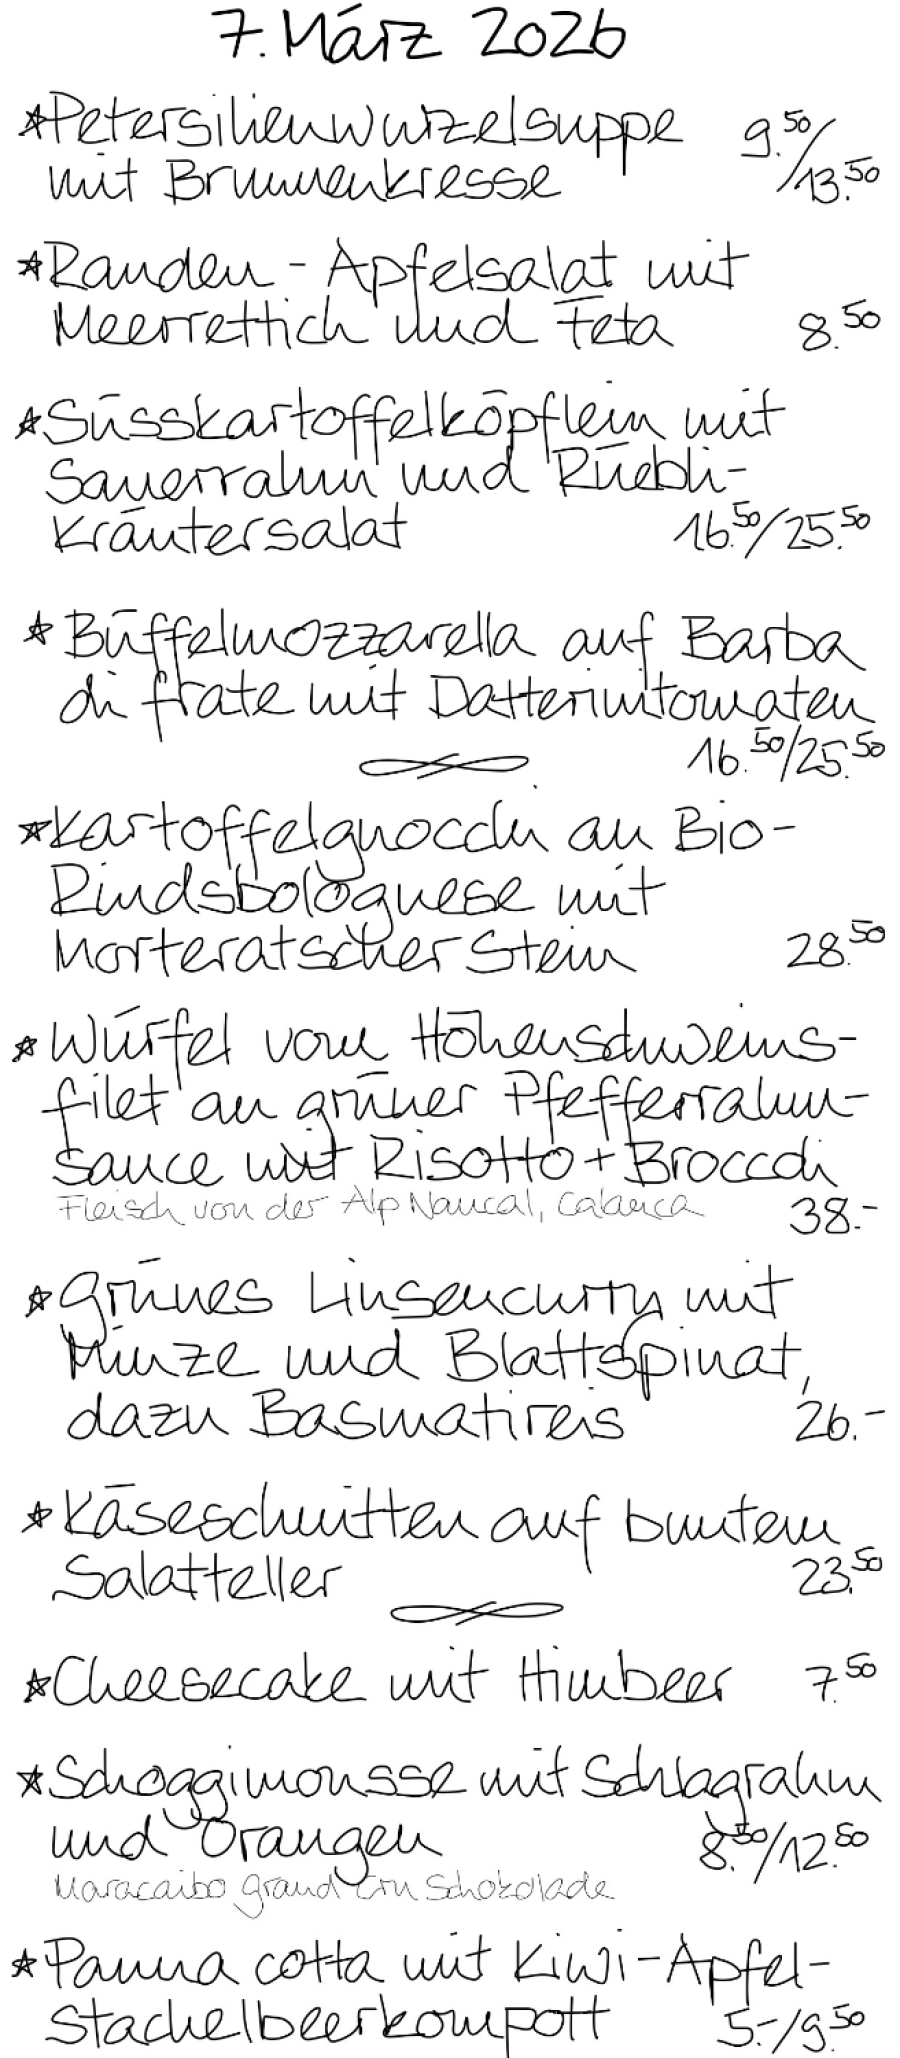 7. März 2026
*Petersilienwurzelsuppe 9.50/
mit Brunnenkresse 13.50
*Randen-Apfelsalat mit
Meerrettich und Feta 8.50
*Süsskartoffelköpflein mit
Sauerrahm und Rüebli-
Kräutersalat 16.50/25.50
*Büffelmozzarella auf Barba
di frate mit Datterinitomaten
16.50/25.50
*Kartoffelgnocchi an Bio-
Rindsbolognese mit
Morteratscher Stein 28.50
*Würfel vom Höhenschweins-
filet an grüner Pfefferrahm-
sauce mit Risotto + Broccoli
Fleisch von der Alp Naucal, Calanca 38.-
*Grünes Linsencurry mit
Minze und Blattspinat,
dazu Basmatireis 26.-
*Käseschnitten auf buntem
Salatteller 23.50
*Cheesecake mit Himbeer 7.50
*Schoggimousse mit Schlagrahm
und Orangen 8.50/12.50
Maracaibo grand Cru Schokolade
*Panna cotta mit Kiwi-Apfel-
Stachelbeerkompott 5.-/9.50